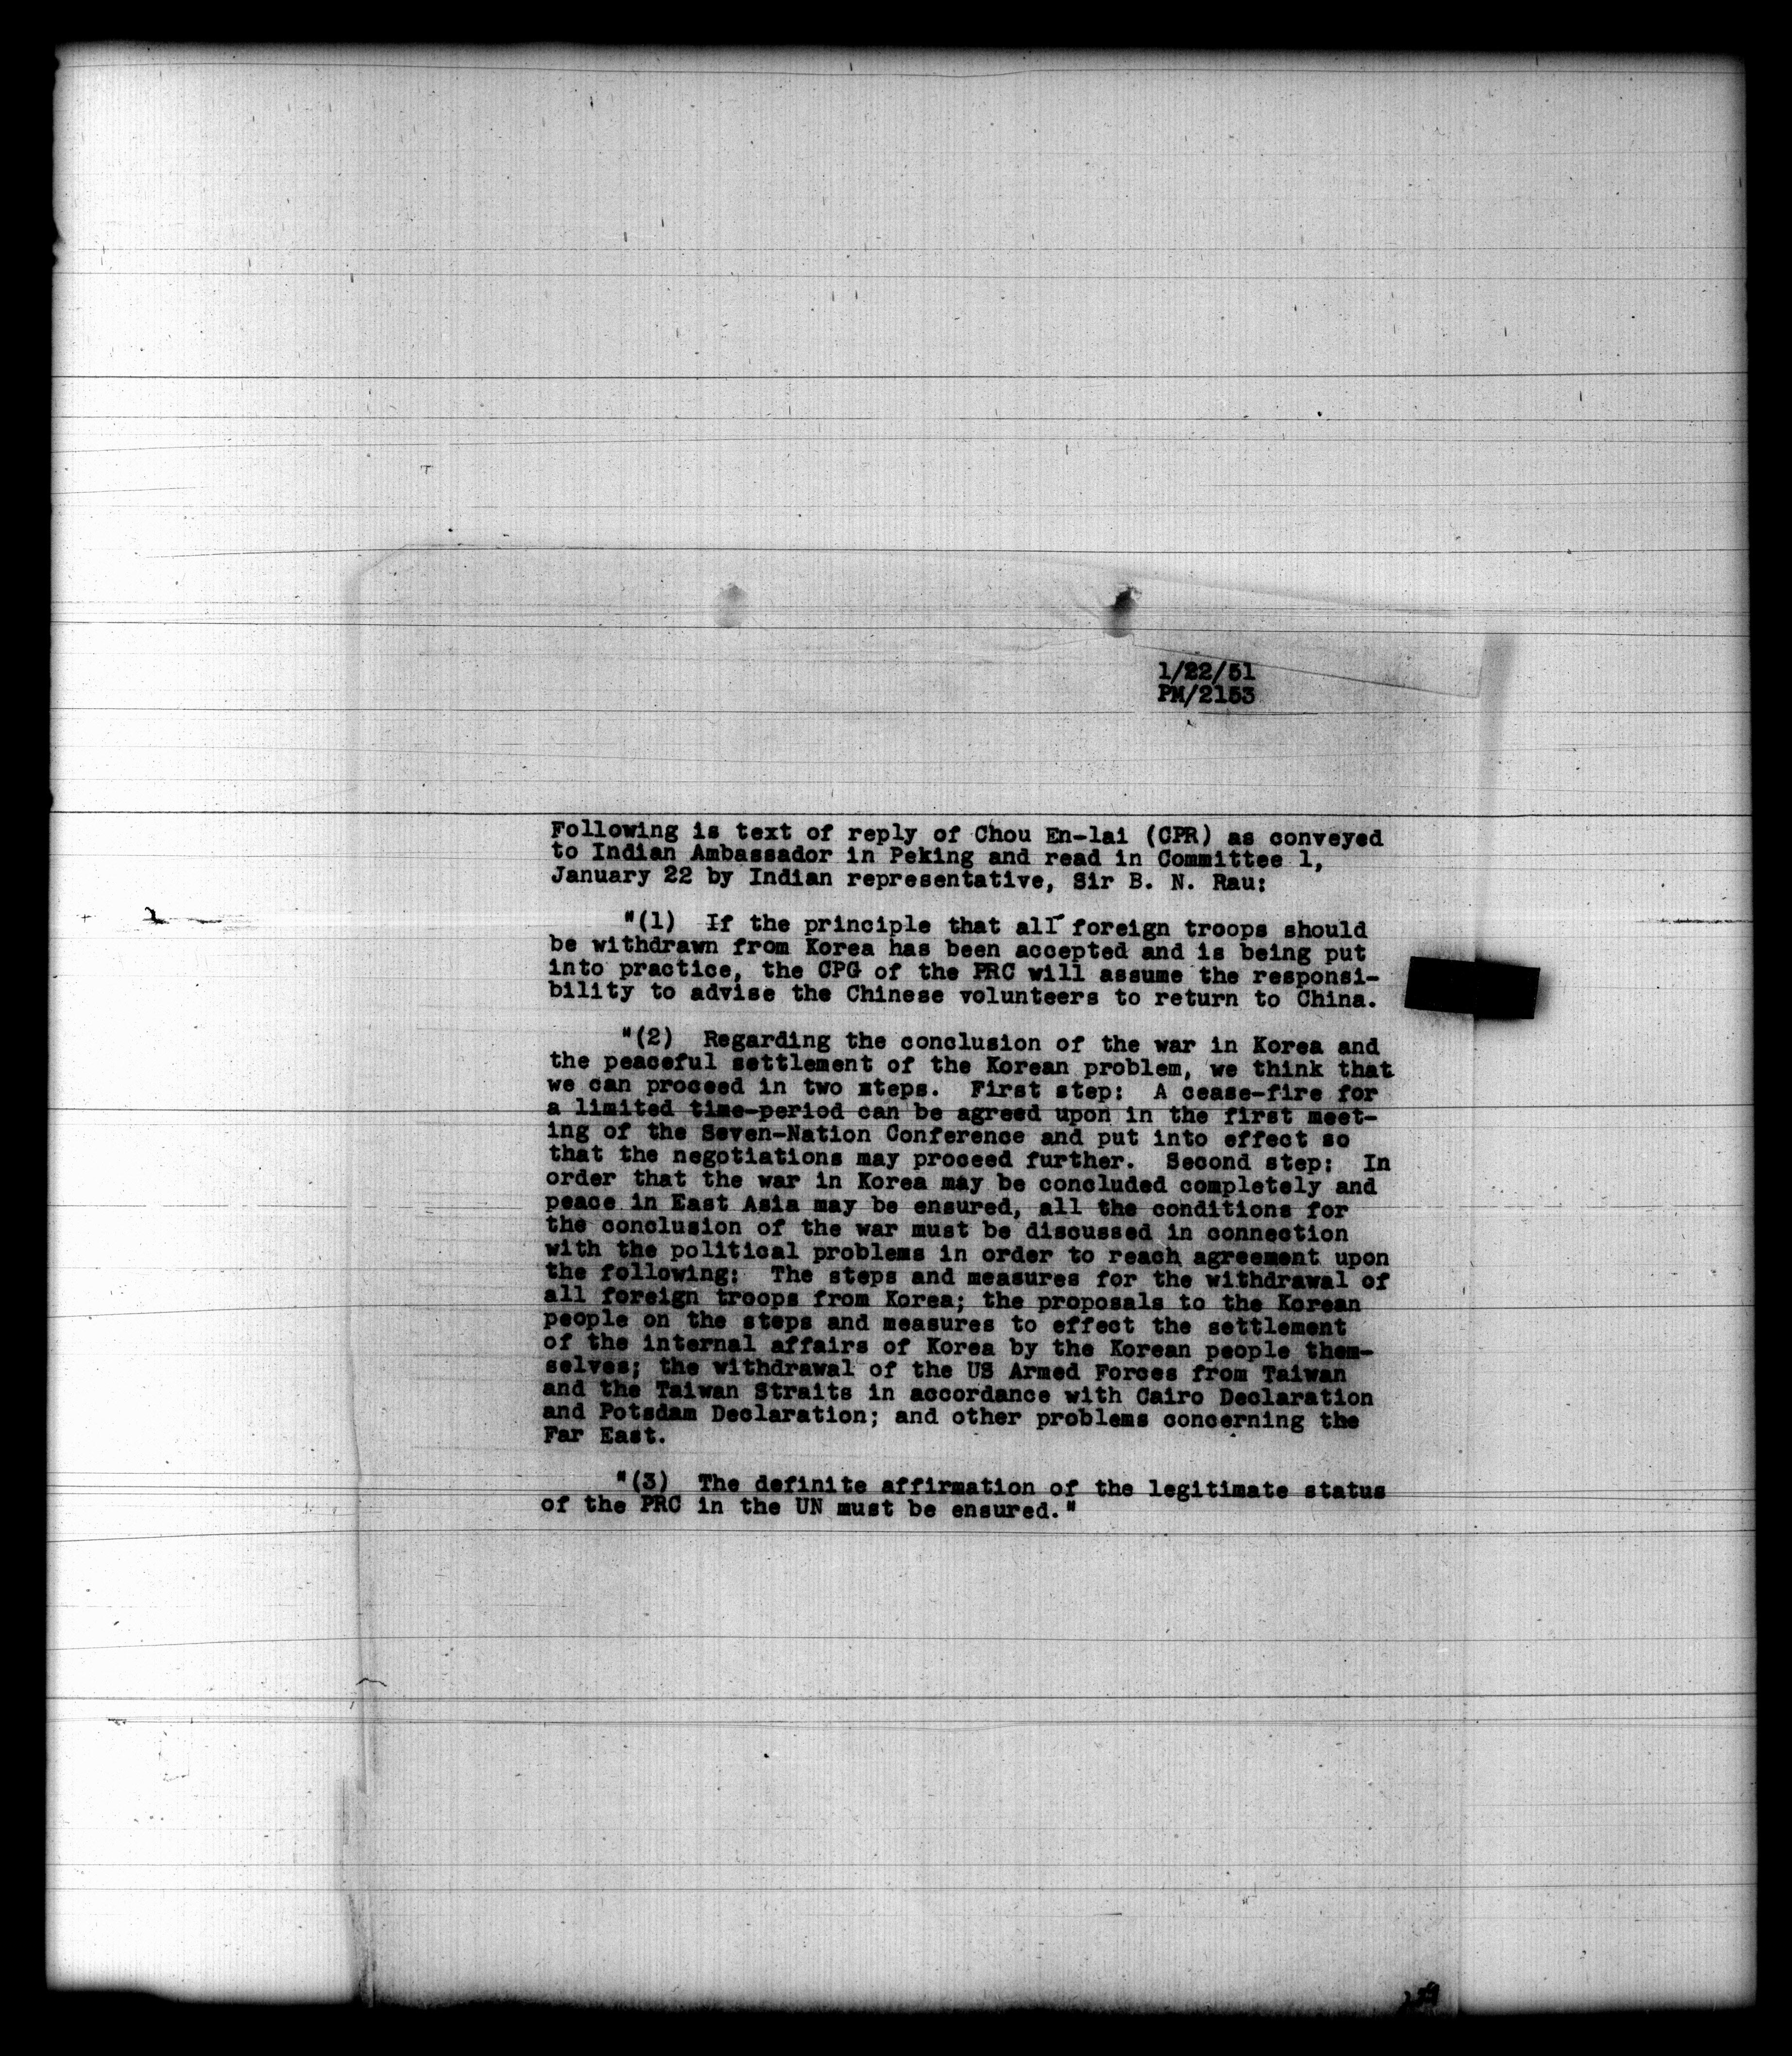 1/22/51
PM/2153
Following is text of reply of Chou En-lai (CPR) as conveyed
to Indian Ambassador in Peking and read in Committee 1,
January 22 by Indian representative, Sir B. N. Rau:
"(1) If the principle that all foreign troops should
be withdrawn from Korea has been accepted and is being put
into practice, the CPG of the PRC will assume the responsi-
bility to advise the Chinese volunteers to return to China.
"(2) Regarding the conclusion of the war in Korea and
the peaceful settlement of the Korean problem, we think that
we can proceed in two steps. First step: A cease-fire for
a limited time-period can be agreed upon in the first meet-
ing of the Seven-Nation Conference and put into effect so
that the negotiations may proceed further. Second step: In
order that the war in Korea may be concluded completely and
peace in East Asia may be ensured, all the conditions for
the conclusion of the war must be discussed in connection
with the political problems in order to reach agreement upon
the following: The steps and measures for the withdrawal of
all foreign troops from Korea; the proposals to the Korean
people on the steps and measures to effect the settlement
of the internal affairs of Korea by the Korean people them-
selves; the withdrawal of the US Armed Forces from Taiwan
and the Taiwan Straits in accordance with Cairo Declaration
and Potsdam Declaration; and other problems concerning the
Far East.
"(3) The definite affirmation of the legitimate status
of the PRC in the UN must be ensured."